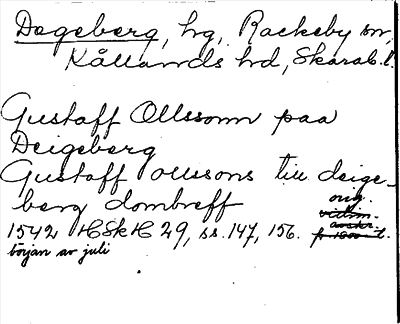 Degeberg, hg, Rackeby sn,
Kållands hd, Skarab. l.
Gustaff Ollssonn paa
Deigeberg
Gustaff ollssons till deige-
berg dombreff
orig.
vidim.
avskr.
1542 HSkH 29, ss. 147, 156. f. 1800 t.
början av juli